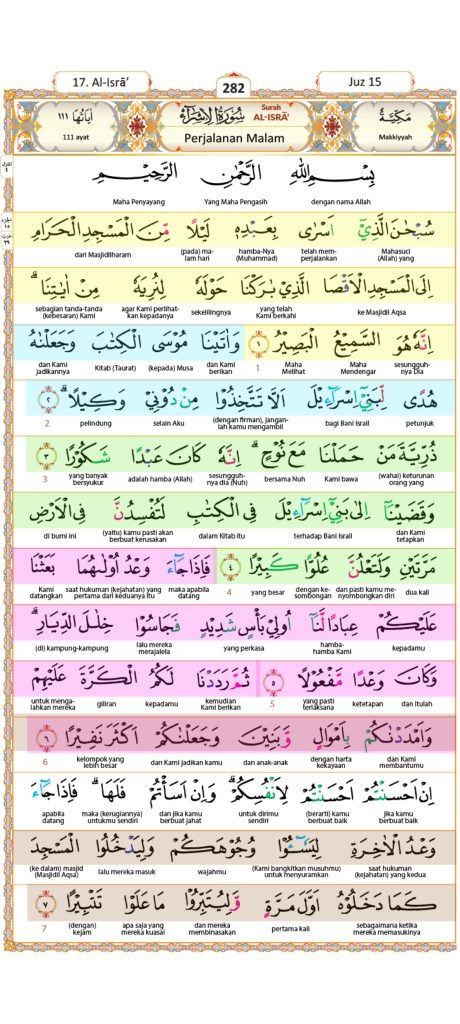 17. Al-Isrā’
282
Juz 15
اٰيَاتُهَا ١١١
111 ayat
سُوْرَةُ الْاِسْرَۤاءِ
Surah AL-ISRĀ’
Perjalanan Malam
مَكِّيَّةٌ
Makkiyyah
بِسْمِ اللّٰهِ الرَّحْمٰنِ الرَّحِيْمِ
dengan nama Allah Yang Maha Pengasih Maha Penyayang
سُبْحٰنَ الَّذِيْٓ اَسْرٰى بِعَبْدِهٖ لَيْلًا مِّنَ الْمَسْجِدِ الْحَرَامِ
Mahasuci (Allah) yang telah mem-perjalankan hamba-Nya (Muhammad) (pada) ma-lam hari dari Masjidilharam
اِلَى الْمَسْجِدِ الْاَقْصَا الَّذِيْ بٰرَكْنَا حَوْلَهٗ لِنُرِيَهٗ مِنْ اٰيٰتِنَاۗ
ke Masjidil Aqsa yang telah Kami berkahi sekelilingnya agar Kami perlihat-kan kepadanya sebagian tanda-tanda (kebesaran) Kami
اِنَّهٗ هُوَ السَّمِيْعُ الْبَصِيْرُ ١ وَاٰتَيْنَا مُوْسَى الْكِتٰبَ وَجَعَلْنٰهُ
sesungguh-nya Dia Maha Mendengar Maha Melihat 1 dan Kami berikan (kepada) Musa Kitab (Taurat) dan Kami jadikannya
هُدًى لِّبَنِيْٓ اِسْرَاۤءِيْلَ اَلَّا تَتَّخِذُوْا مِنْ دُوْنِيْ وَكِيْلًاۗ ٢
petunjuk bagi Bani Israil (dengan firman), jangan-lah kamu mengambil selain Aku pelindung 2
ذُرِّيَّةَ مَنْ حَمَلْنَا مَعَ نُوْحٍۗ اِنَّهٗ كَانَ عَبْدًا شَكُوْرًا ٣
(wahai) keturunan orang yang Kami bawa bersama Nuh sesungguh-nya dia (Nuh) adalah hamba (Allah) yang banyak bersyukur 3
وَقَضَيْنَآ اِلٰى بَنِيْٓ اِسْرَاۤءِيْلَ فِى الْكِتٰبِ لَتُفْسِدُنَّ فِى الْاَرْضِ
dan Kami tetapkan terhadap Bani Israil dalam Kitab itu (yaitu) kamu pasti akan berbuat kerusakan di bumi ini
مَرَّتَيْنِ وَلَتَعْلُنَّ عُلُوًّا كَبِيْرًا ٤ فَاِذَا جَاۤءَ وَعْدُ اُوْلٰىهُمَا بَعَثْنَا
dua kali dan pasti kamu me-nyombongkan diri dengan ke-sombongan yang besar 4 maka apabila datang saat hukuman (kejahatan) yang pertama dari keduanya itu Kami datangkan
عَلَيْكُمْ عِبَادًا لَّنَآ اُولِيْ بَأْسٍ شَدِيْدٍ فَجَاسُوْا خِلٰلَ الدِّيَارِۗ
kepadamu hamba-hamba Kami yang perkasa lalu mereka merajalela (di) kampung-kampung
وَكَانَ وَعْدًا مَّفْعُوْلًا ٥ ثُمَّ رَدَدْنَا لَكُمُ الْكَرَّةَ عَلَيْهِمْ
dan itulah ketetapan yang pasti terlaksana 5 kemudian Kami berikan kepadamu giliran untuk menga-lahkan mereka
وَاَمْدَدْنٰكُمْ بِاَمْوَالٍ وَّبَنِيْنَ وَجَعَلْنٰكُمْ اَكْثَرَ نَفِيْرًا ٦
dan Kami membantumu dengan harta kekayaan dan anak-anak dan Kami jadikan kamu kelompok yang lebih besar 6
اِنْ اَحْسَنْتُمْ اَحْسَنْتُمْ لِاَنْفُسِكُمْۗ وَاِنْ اَسَأْتُمْ فَلَهَاۗ فَاِذَا جَاۤءَ
jika kamu berbuat baik (berarti) kamu berbuat baik untuk dirimu sendiri dan jika kamu berbuat jahat maka (kerugiannya) untukmu sendiri apabila datang
وَعْدُ الْاٰخِرَةِ لِيَسٗۤـُٔوْا وُجُوْهَكُمْ وَلِيَدْخُلُوا الْمَسْجِدَ
saat hukuman (kejahatan) yang kedua (Kami bangkitkan musuhmu) untuk menyuramkan wajahmu lalu mereka masuk (ke dalam) masjid (Masjidil Aqsa)
كَمَا دَخَلُوْهُ اَوَّلَ مَرَّةٍ وَّلِيُتَبِّرُوْا مَا عَلَوْا تَتْبِيْرًا ٧
sebagaimana ketika mereka memasukinya pertama kali dan mereka membinasakan apa saja yang mereka kuasai (dengan) kejam 7